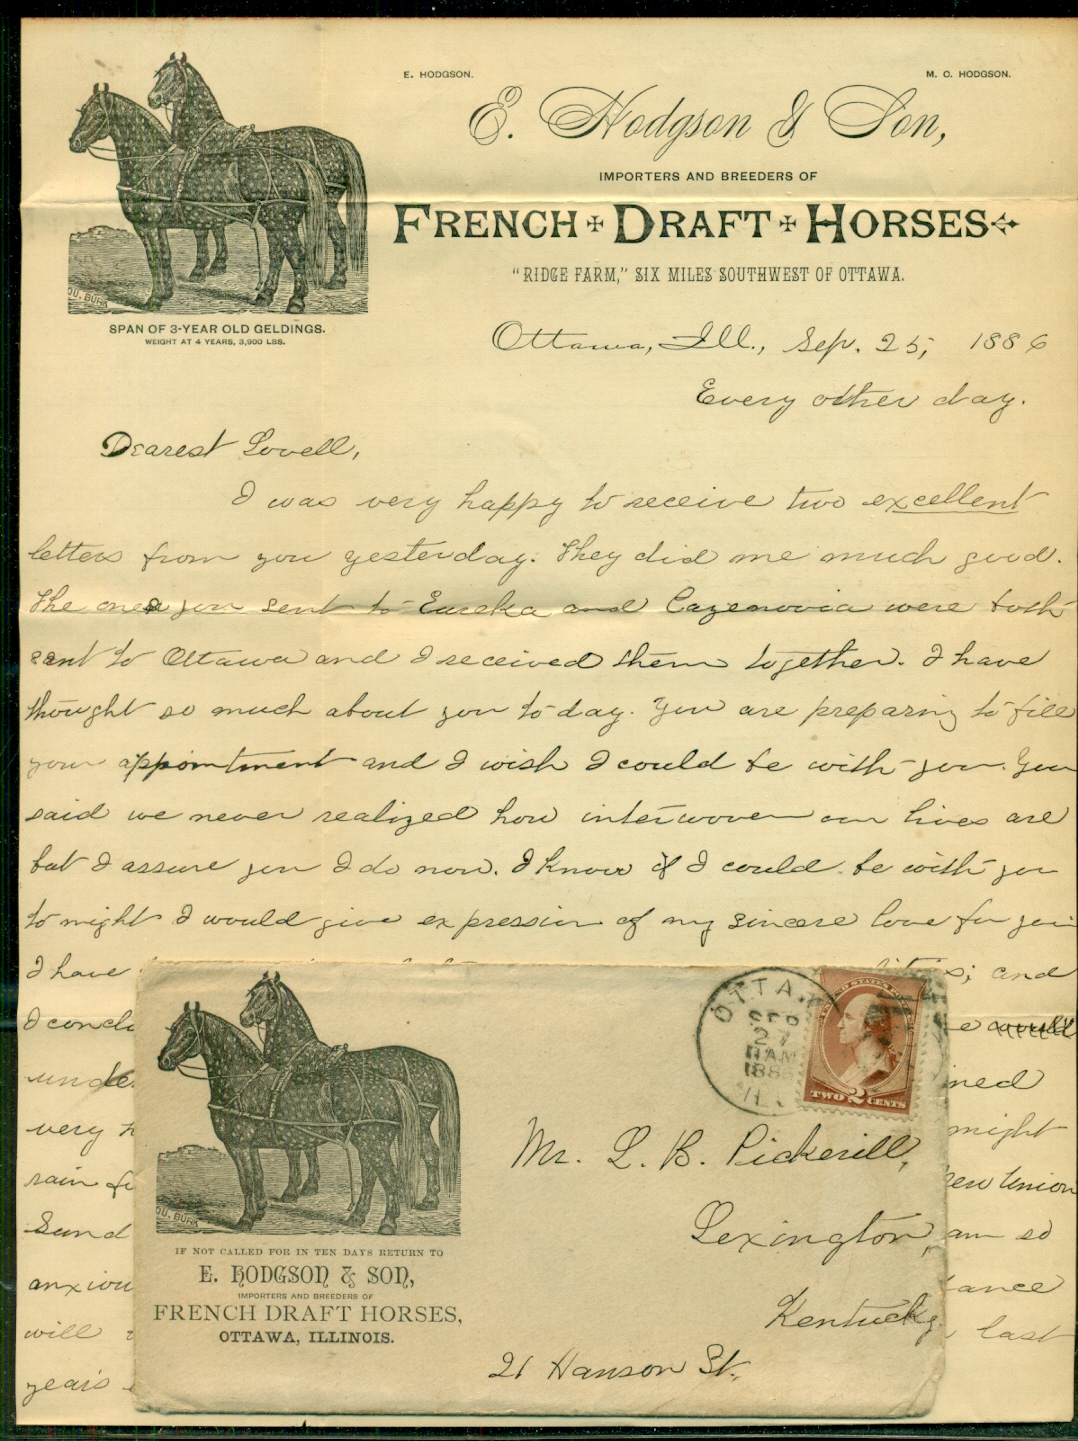 E. HODGSON.
M. C. HODGSON.
E. Hodgson & Son,
IMPORTERS AND BREEDERS OF
FRENCH DRAFT HORSES
"RIDGE FARM," SIX MILES SOUTHWEST OF OTTAWA.
SPAN OF 3-YEAR OLD GELDINGS.
WEIGHT AT 4 YEARS, 3,900 LBS.
Ottawa, Ill., Sep. 25, 1886
Every other day.
Dearest Lovell,
I was very happy to receive two excellent
letters from you yesterday. They did me much good.
The ones you sent to Eureka and Cazenovia were both
sent to Ottawa and I received them together. I have
thought so much about you to-day. You are preparing to fill
your appointment and I wish I could be with you. You
said we never realized how interwoven our lives are
but I assure you I do now. I know if I could be with you
to night I would give expression of my sincere love for you
I have
; and
I conclu
e would
under
ned
very
might
rain
ew Union
Sund
am so
anxiou
ance
will
last
year's
OTTAWA
SEP
27
11AM
188
ILL.
UNITED STATES
TWO 2 CENTS
Mr. L. B. Pickerill,
Lexington,
Kentucky.
21 Hanson St.,
OU. BURK
OU. BURK
IF NOT CALLED FOR IN TEN DAYS RETURN TO
E. HODGSON & SON,
IMPORTERS AND BREEDERS OF
FRENCH DRAFT HORSES,
OTTAWA, ILLINOIS.